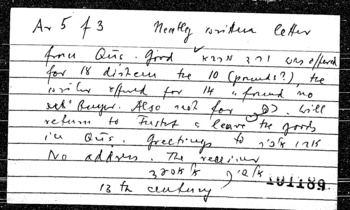 Ar 5 f 3 Neatly written letter
from Qūṣ. Good אכרא was offered
for 18 dirhem the 10 (pounds?), the
writer offered for 14 & found no
Buyer. Also not for. Will
return to Fustat & leave the goods
in Qūṣ. Greetings to
No address. The receiver
13th century
101189